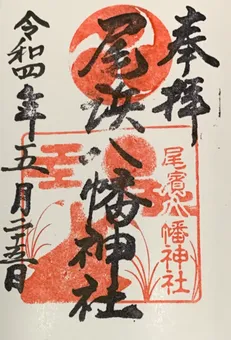 奉拝
尾浜八幡神社
尾濱八幡神社
令和四年五月二十五日